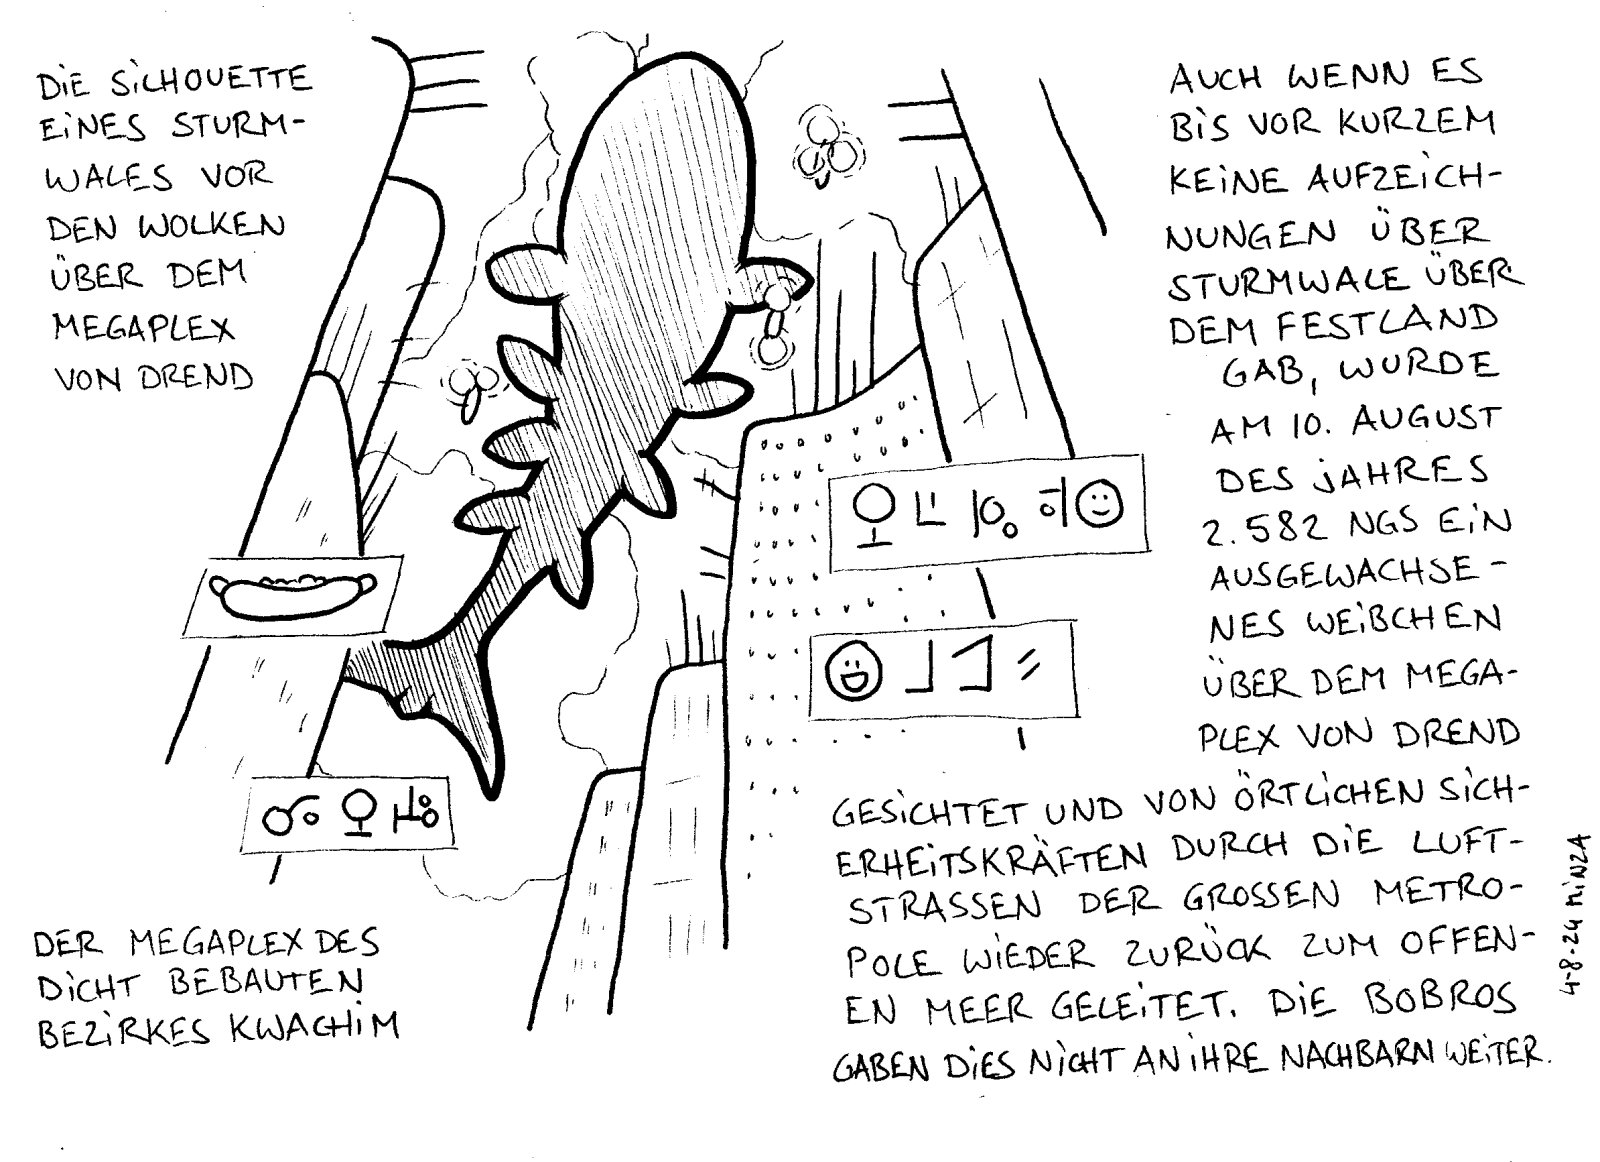 DIE SILHOUETTE
EINES STURM-
WALES VOR
DEN WOLKEN
ÜBER DEM
MEGAPLEX
VON DREND
AUCH WENN ES
BIS VOR KURZEM
KEINE AUFZEICH-
NUNGEN ÜBER
STURMWALE ÜBER
DEM FESTLAND
GAB, WURDE
AM 10. AUGUST
DES JAHRES
2.582 NGS EIN
AUSGEWACHSE-
NES WEIBCHEN
ÜBER DEM MEGA-
PLEX VON DREND
GESICHTET UND VON ÖRTLICHEN SICH-
ERHEITSKRÄFTEN DURCH DIE LUFT-
STRASSEN DER GROSSEN METRO-
POLE WIEDER ZURÜCK ZUM OFFEN-
EN MEER GELEITET. DIE BOBROS
GABEN DIES NICHT AN IHRE NACHBARN WEITER.
DER MEGAPLEX DES
DICHT BEBAUTEN
BEZIRKES KWACHIM
4-8-24 MINZA